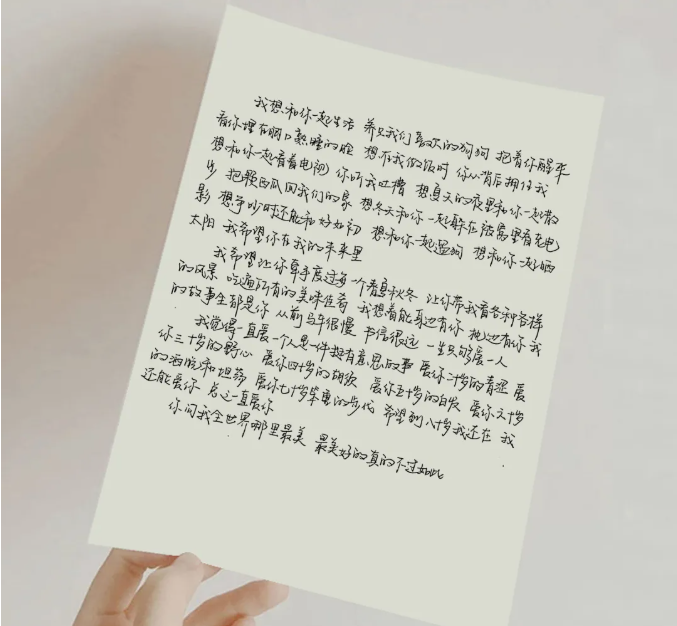 我想和你一起生活 养只我们喜欢的狗狗 抱着你醒来
看你埋在胸口熟睡的脸 想在我做饭时 你从背后拥住我
想和你一起看着电视 你听我吐槽 想夏天的夜里和你一起散
步 抱颗西瓜回我们的家 想冬天和你一起躲在被窝里看充电
影 想争吵时还能和好如初 想和你一起遛狗 想和你一起晒
太阳 我希望你在我的未来里
我希望让你牵手度过每一个春夏秋冬 让你带我看各种各样
的风景 吃遍所有的美味佳肴 我想着能身边有你 枕边有你 我
的故事全部是你 从前马车很慢 书信很远 一生只够爱一人
我觉得一直爱一个人是一件挺有意思的事 爱你二十岁的青涩 爱
你三十岁的野心 爱你四十岁的胡须 爱你五十岁的白发 爱你六十岁
的洒脱和坦荡 爱你七十岁笨重的步伐 希望到八十岁我还在 我
还能爱你 总之一直爱你
你问我全世界哪里最美 最美好的真的不过如此